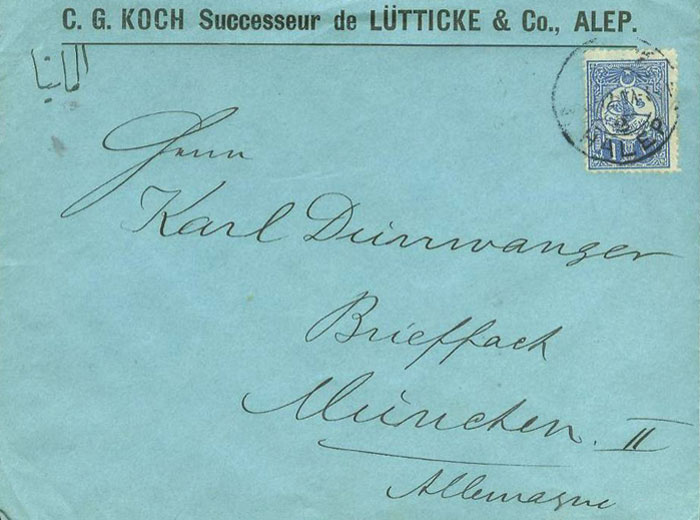 C. G. KOCH Successeur de LÜTTICKE & Co., ALEP.
المانيا
Herrn
Karl Dürrwanger
Brieffach
München II
Allemagne
ALEP
1